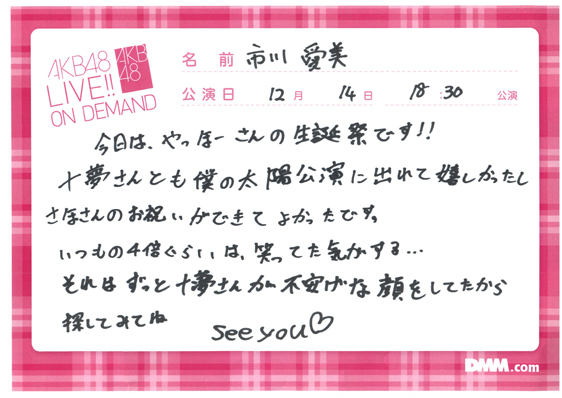 AKB48
LIVE!!
ON DEMAND
AKB
48
名前 市川 愛美
公演日 12月 14日 18:30 公演
今日は、やっほーさんの生誕祭です!!
十夢さんとも僕の太陽公演に出れて嬉しかったし
さほさんのお祝いができてよかったです。
いつもの4倍ぐらいは、笑ってた気がする...
それはずっと十夢さんが不安げな顔をしてたから
探してみてね
see you♡
DMM.com